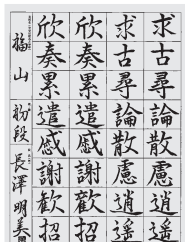 求古尋論散慮逍遥
求古尋論散慮逍遥
欣奏累遣慼謝歡招
欣奏累遣慼謝歡招
福山 初段 長澤明美